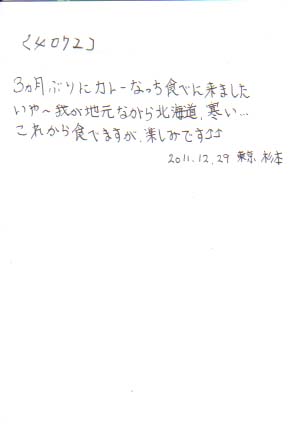 [4072]
3ヵ月ぶりにカトーなっち食べに来ました
いや～我が地元ながら北海道、寒い…
これから食べますが、楽しみです♪♪
2011.12.29 東京 杉本